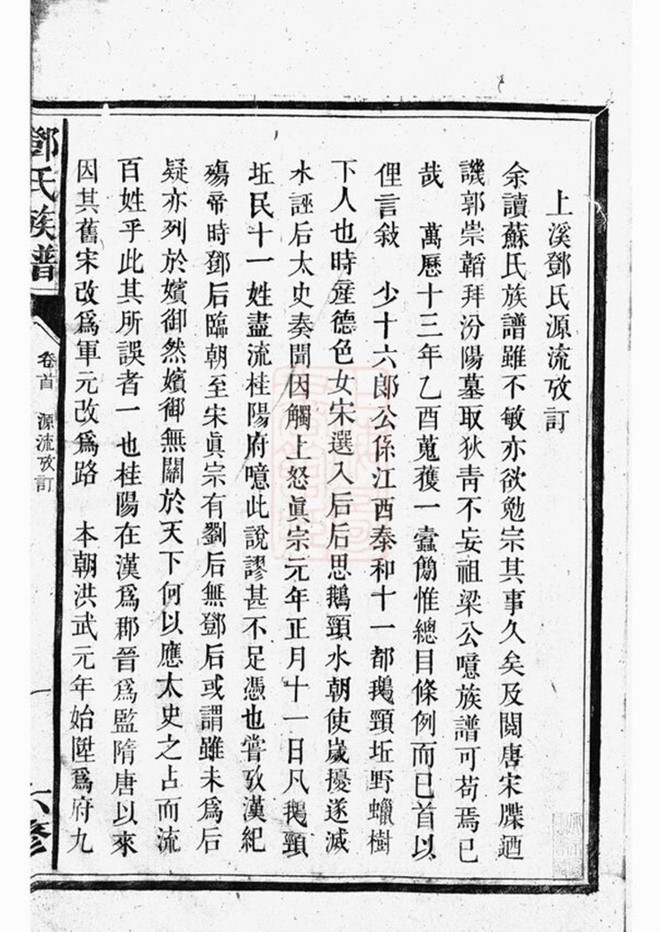 上溪鄧氏源流攷訂
余讀蘇氏族譜雖不敏亦欲勉宗其事久矣及閱唐宋牒迺
譏郭崇韜拜汾陽墓取狄靑不妄祖梁公噫族譜可苟焉已
哉　萬歷十三年乙酉蒐獲一蠹簡惟總目條例而已首以
俚言敍　少十六郎公係江西泰和十一都鵝頸坵野蠟樹
下人也時產德色女宋選入后后思鵝頸水朝使歲擾遂滅
水誣后太史奏聞因觸上怒眞宗元年正月十一日凡鵝頸
坵民十一姓盡流桂陽府噫此說謬甚不足憑也嘗攷漢紀
殤帝時鄧后臨朝至宋眞宗有劉后無鄧后或謂雖未爲后
疑亦列於嬪御然嬪御無關於天下何以應太史之占而流
百姓乎此其所誤者一也桂陽在漢爲郡晉爲監隋唐以來
因其舊宋改爲軍元改爲路　本朝洪武元年始陞爲府九
鄧氏族譜
卷首　源流攷訂
一
六修